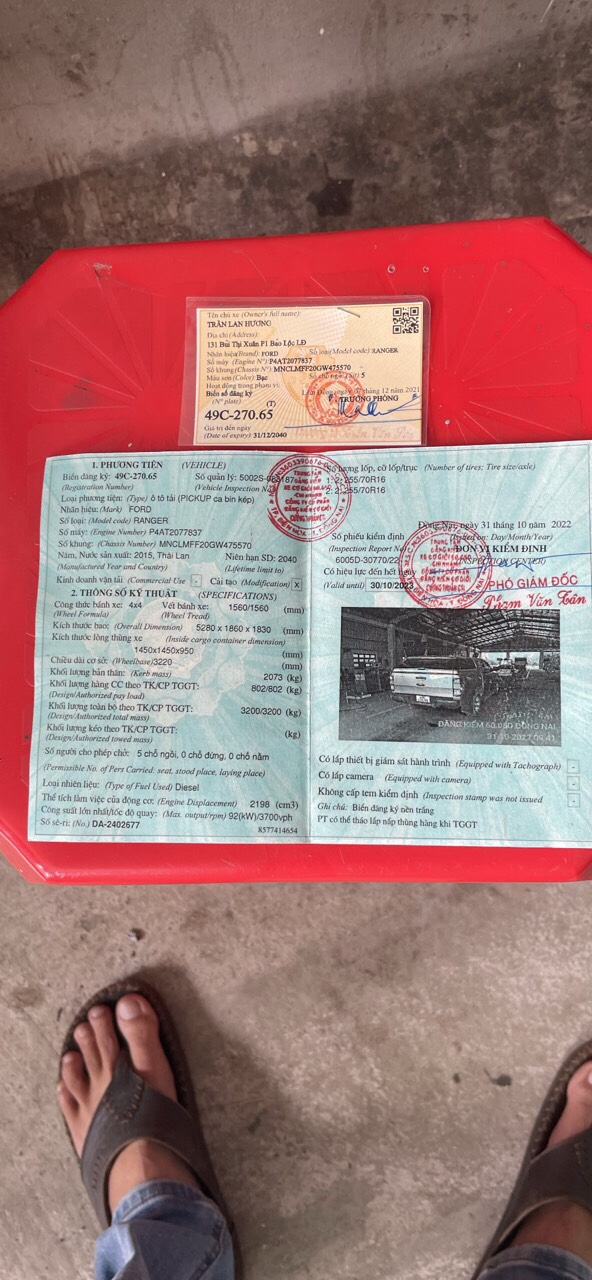 Tên chủ xe (Owner's full name):
TRẦN LAN HƯƠNG
Địa chỉ (Address):
131 Bùi Thị Xuân P1 Bảo Lộc LĐ
Nhãn hiệu(Brand): FORD Số loại(Model code): RANGER
Số máy (Engine N°): P4AT2077837
Số khung(Chassis N°): MNCLMFF20GW475570
Màu sơn (Color): Bạc Số chỗ ngồi 5
Hoạt động trong phạm vi
Biển số đăng ký 12 năm 2021
(N° plate) (T) TRƯỞNG PHÒNG
49C-270.65
Giá trị đến ngày
(Date of expiry) 31/12/2040
1. PHƯƠNG TIỆN (VEHICLE)
Biển đăng ký: 49C-270.65 Số quản lý: 5002S-
(Registration Number) (Vehicle Inspection
Loại phương tiện: (Type) ô tô tải (PICKUP ca bin kép)
Nhãn hiệu: (Mark) FORD
Số loại: (Model code) RANGER
Số máy: (Engine Number) P4AT2077837
Số khung: (Chassis Number) MNCLMFF20GW475570
Năm, Nước sản xuất: 2015, Thái Lan Niên hạn SD: 2040
(Manufactured Year and Country) (Lifetime limit to)
Kinh doanh vận tải (Commercial Use) - Cải tạo (Modification) X
2. THÔNG SỐ KỸ THUẬT (SPECIFICATIONS)
Công thức bánh xe: 4x4 Vết bánh xe: 1560/1560 (mm)
(Wheel Formula) (Wheel Tread)
Kích thước bao: (Overall Dimension) 5280 x 1860 x 1830 (mm)
Kích thước lòng thùng xe (Inside cargo container dimension)
1450x1450x950 (mm)
Chiều dài cơ sở: (Wheelbase) 3220 (mm)
Khối lượng bản thân: (Kerb mass) 2073 (kg)
Khối lượng hàng CC theo TK/CP TGGT: 802/802 (kg)
(Design/Authorized pay load)
Khối lượng toàn bộ theo TK/CP TGGT: 3200/3200 (kg)
(Design/Authorized total mass)
Khối lượng kéo theo TK/CP TGGT: (kg)
(Design/Authorized towed mass)
Số người cho phép chở: 5 chỗ ngồi, 0 chỗ đứng, 0 chỗ nằm
(Permissible No. of Pers Carried: seat, stood place, laying place)
Loại nhiên liệu: (Type of Fuel Used) Diesel
Thể tích làm việc của động cơ: (Engine Displacement) 2198 (cm3)
Công suất lớn nhất/tốc độ quay: (Max. output/rpm) 92(kW)/3700vph
Số sê-ri: (No.) DA-2402677 8577414654
Số lượng lốp, cỡ lốp/trục (Number of tires: Tire size/axle)
1: 2; 255/70R16
2: 2; 255/70R16
Đồng Nai, ngày 31 tháng 10 năm 2022
Số phiếu kiểm định Day/Month/Year)
(Inspection Report N ĐƠN VỊ KIỂM ĐỊNH
6005D-30770/22 CENTER)
Có hiệu lực đến hết ngày
(Valid until) 30/10/2023 PHÓ GIÁM ĐỐC
Phạm Văn Tân
ĐĂNG KIỂM 60.05D ĐỒNG NAI
Có lắp thiết bị giám sát hành trình (Equipped with Tachograph) -
Có lắp camera (Equipped with camera) -
Không cấp tem kiểm định (Inspection stamp was not issued -
Ghi chú: Biển đăng ký nền trắng
PT có thể tháo lắp nắp thùng hàng khi TGGT